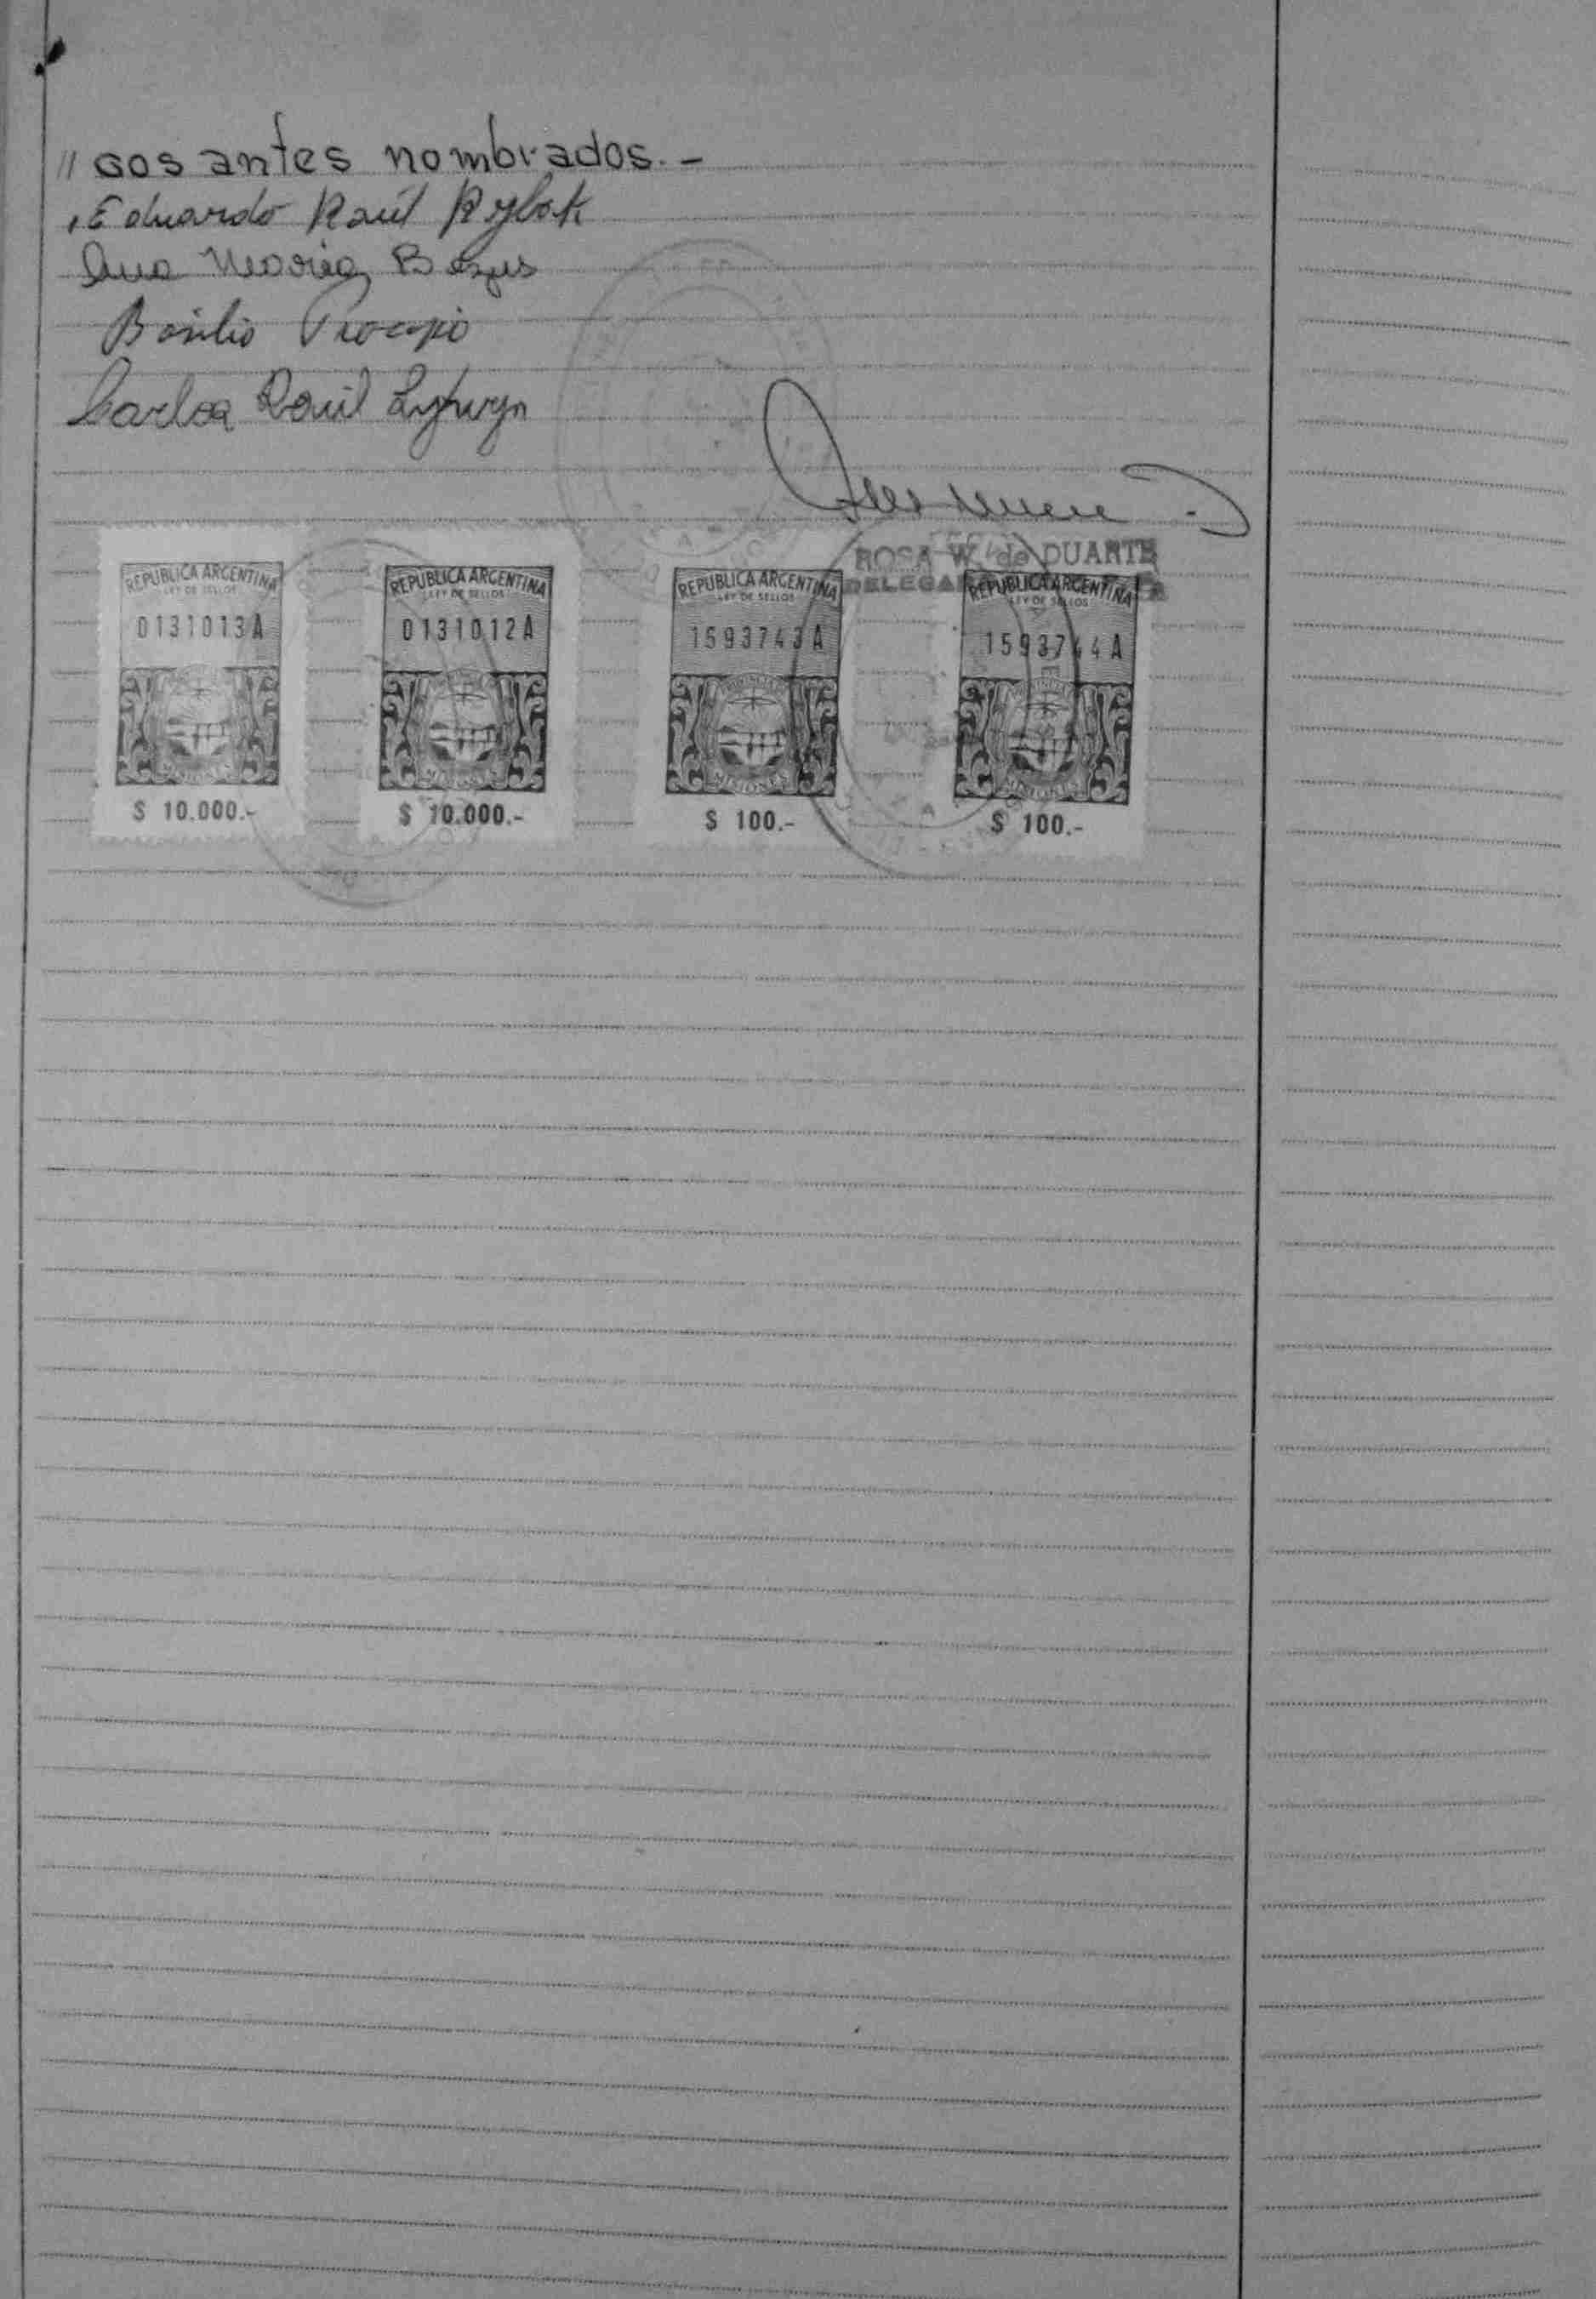 // gos antes nombrados.-
Eduardo Raúl Rybak
Ana María
Basilio Procopio
Carlos Raúl Lytwyn
ROSA W. de DUARTE
REPUBLICA ARGENTINA
LEY DE SELLOS
0131013A
MISIONES
$ 10.000.-
REPUBLICA ARGENTINA
LEY DE SELLOS
0131012A
MISIONES
$ 10.000.-
REPUBLICA ARGENTINA
LEY DE SELLOS
1593743A
MISIONES
$ 100.-
REPUBLICA ARGENTINA
LEY DE SELLOS
1593744A
MISIONES
$ 100.-